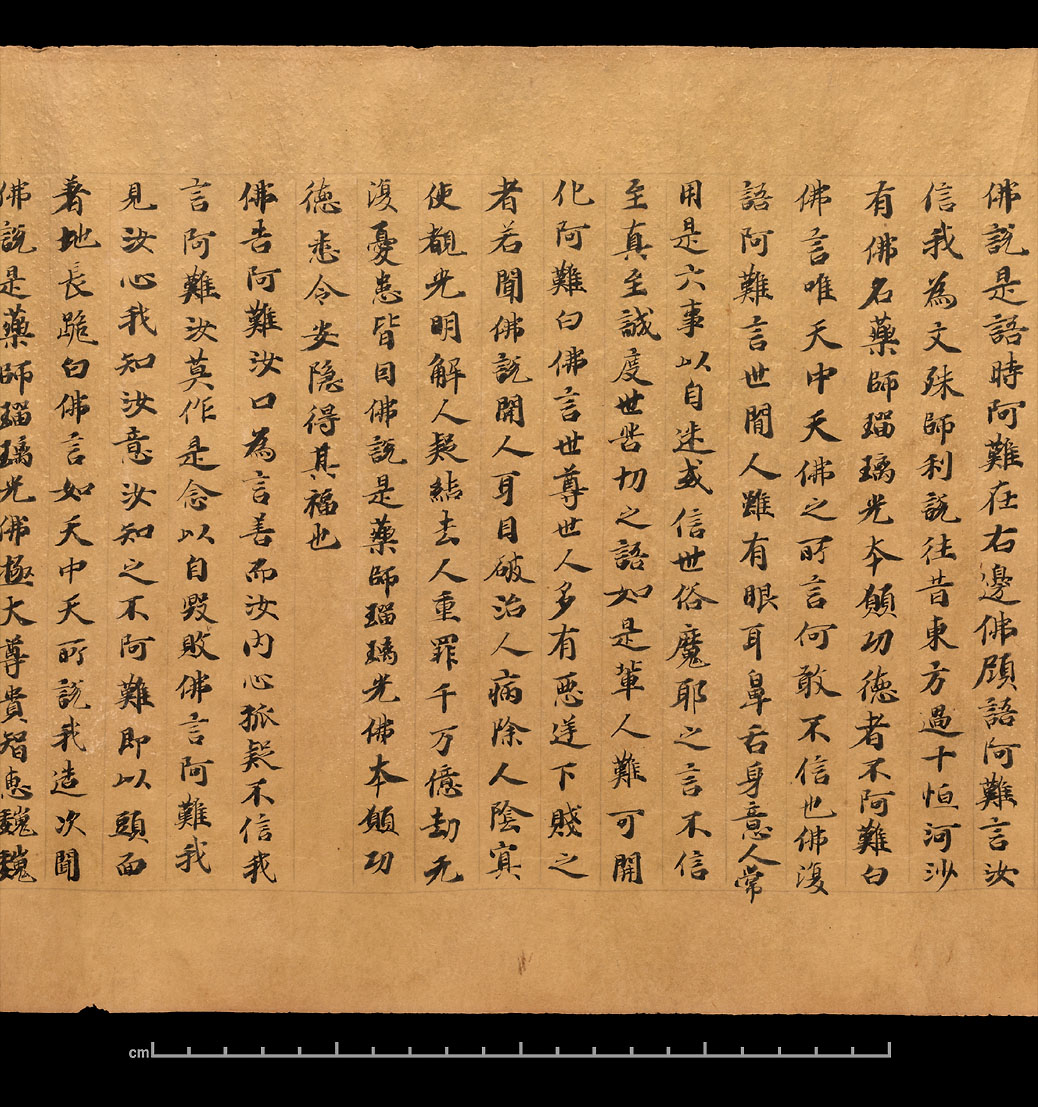 佛說是語時阿難在右邊佛顧語阿難言汝
信我為文殊師利說往昔東方過十恒河沙
有佛名藥師瑠璃光本願功德者不阿難白
佛言唯天中天佛之所言何敢不信也佛復
語阿難言世間人雖有眼耳鼻舌身意人常
用是六事以自迷或信世俗魔耶之言不信
至真至誠度世苦切之語如是軰人難可開
化阿難白佛言世尊世人多有惡逆下賤之
者若聞佛說開人耳目破治人病除人陰冥
使覩光明解人疑結去人重罪千万億劫无
復憂患皆因佛說是藥師瑠璃光佛本願功
德悉令安隱得其福也
佛告阿難汝口為言善而汝內心狐疑不信我
言阿難汝莫作是念以自毀敗佛言阿難我
見汝心我知汝意汝知之不阿難即以頭面
著地長跪白佛言如天中天所說我造次聞
佛說是藥師瑠璃光佛極大尊貴智惠巍巍
cm